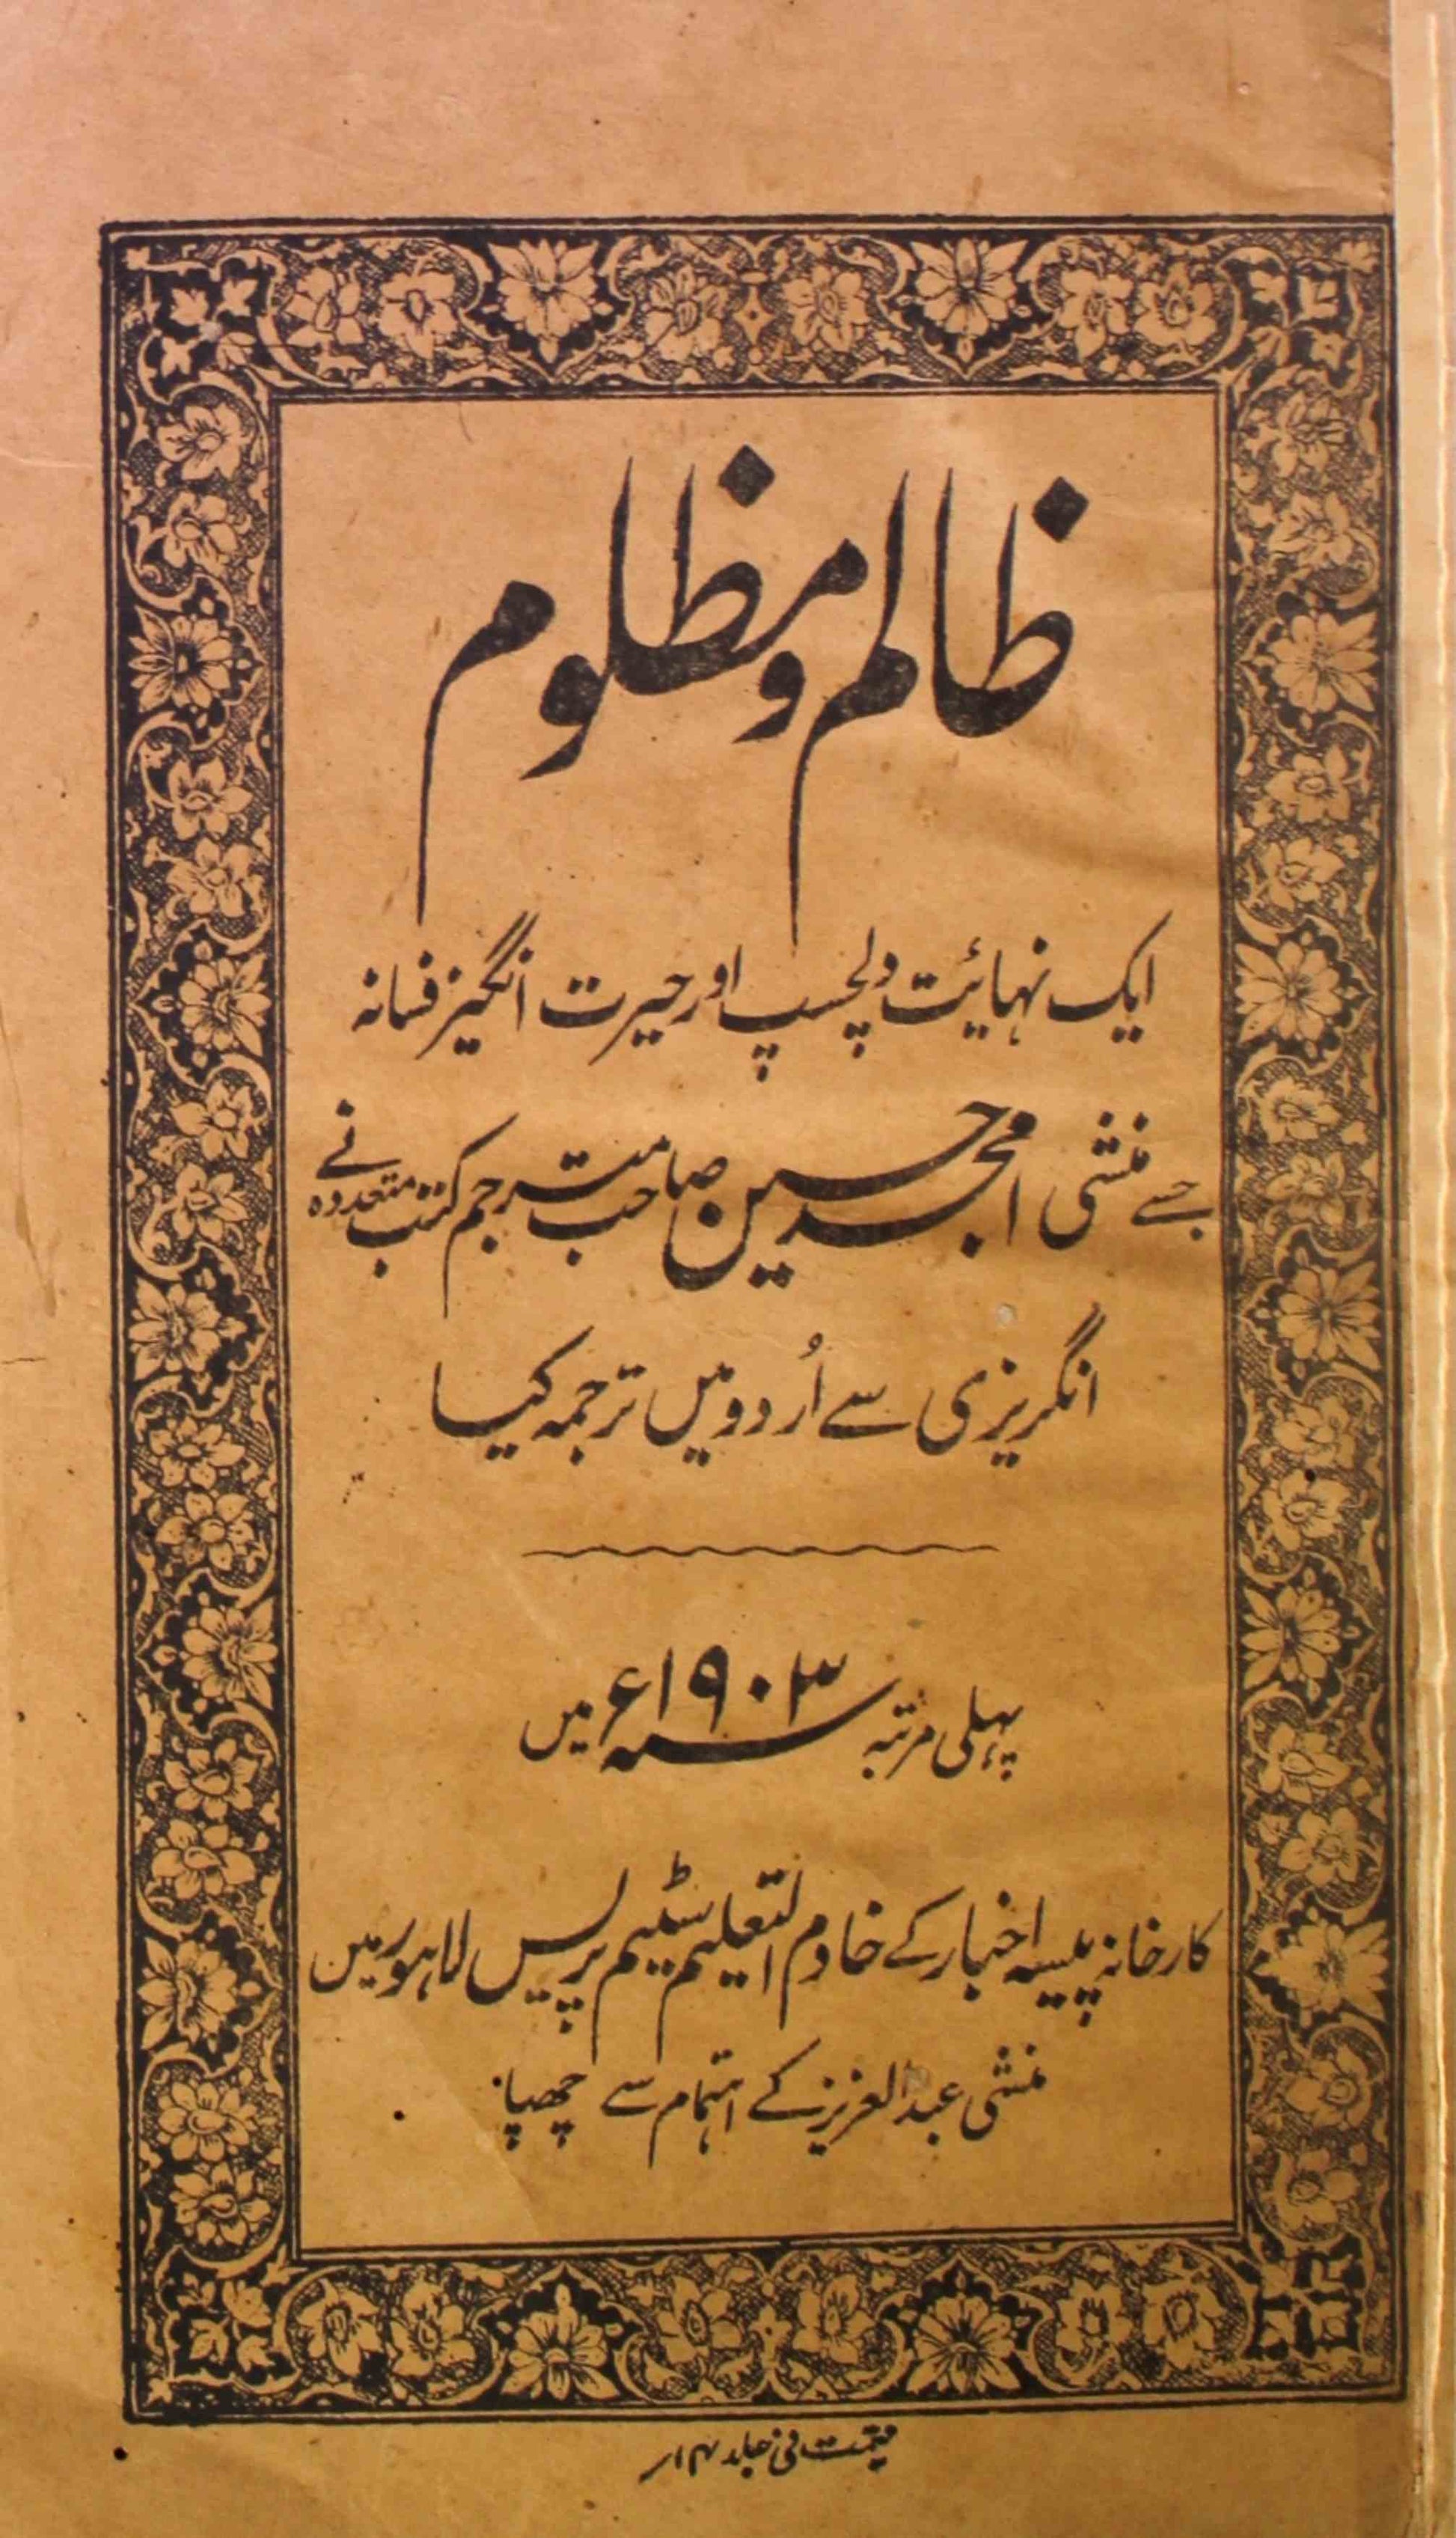 ظالم و مظلوم
ایک نہائت دلچسپ اور حیرت انگیز فسانہ
جسے منشی امجد حسین صاحب مترجم کتب متعددہ نے
انگریزی سے اُردو میں ترجمہ کیا
پہلی مرتبہ سنہ ۱۹۰۳ء میں
کارخانہ پیسہ اخبار کے خادم التعلیم سٹیم پریس لاہور میں
منشی عبدالعزیز کے اہتمام سے چھپا
قیمت فی جلد